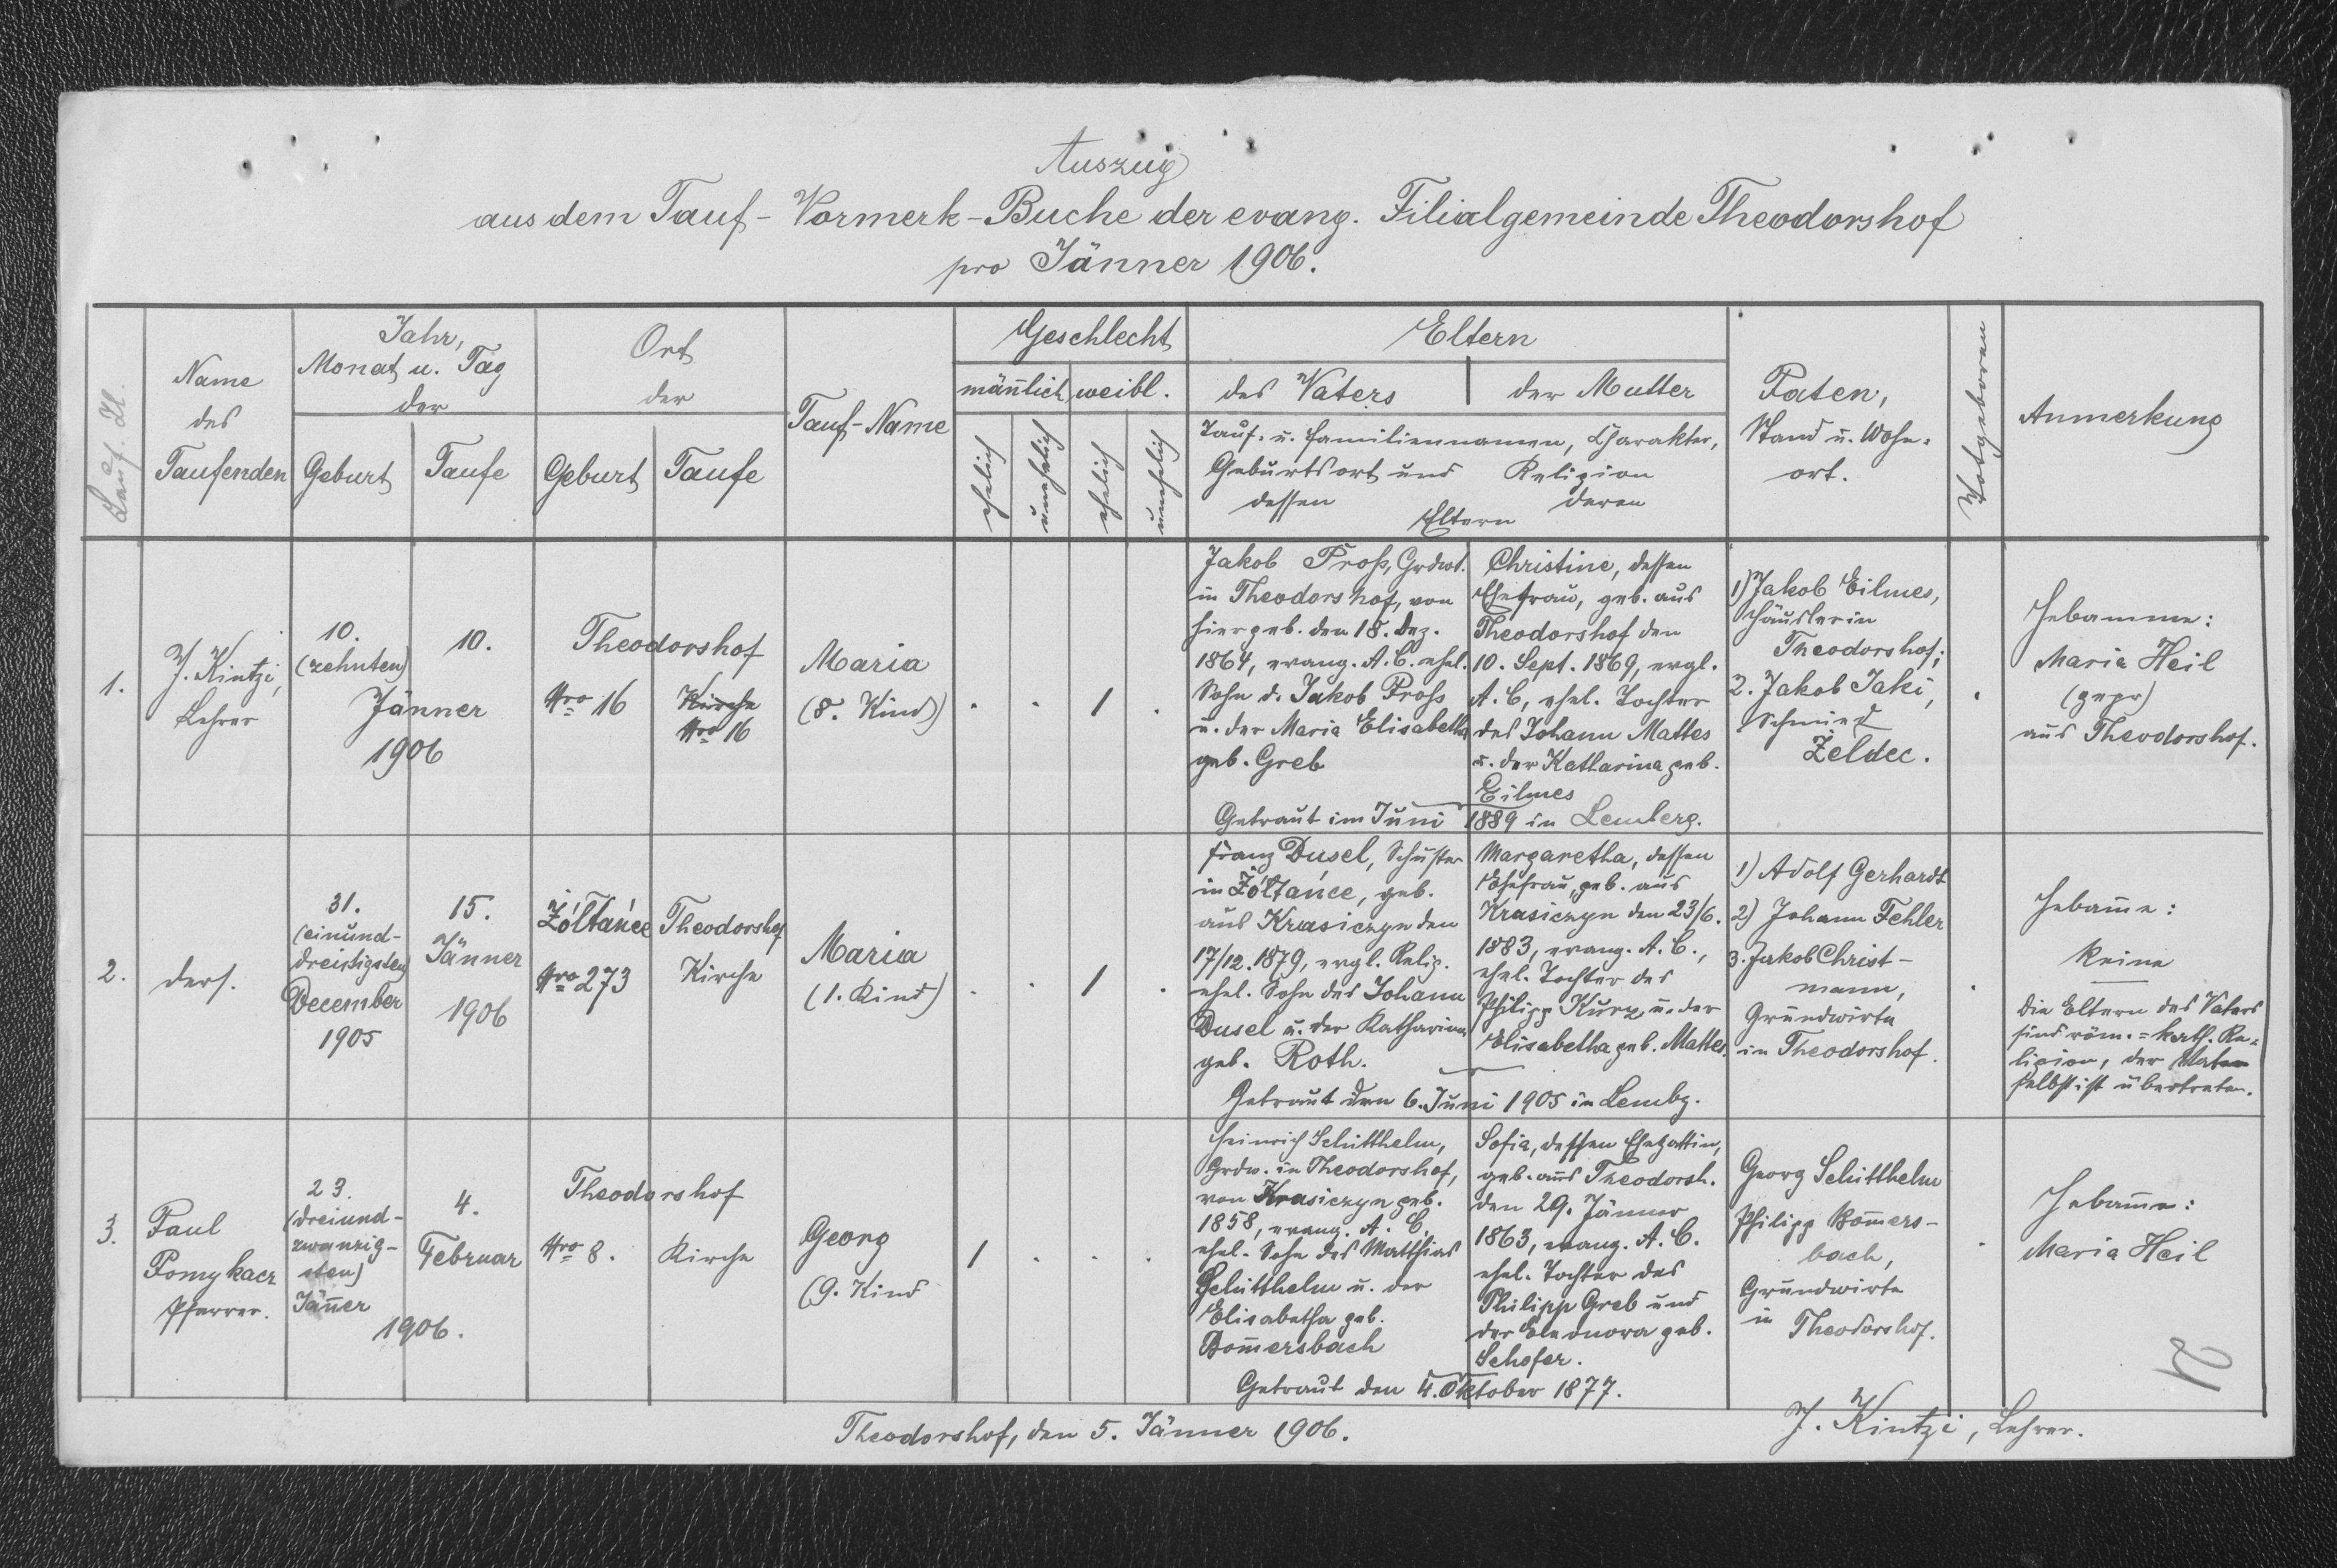 Auszug
aus dem Tauf-Vormerk-Buche der evang. Filialgemeinde Theodorshof
pro Jänner 1906.
Lauf. Zl.
Name
des
Taufenden
Jahr,
Monat u. Tag
der
Geburt
Taufe
Ort
der
Geburt
Taufe
Tauf-Name
Geschlecht
mañlich
weibl.
ehelich
unehelich
ehelich
unehelich
Eltern
des Vaters
der Mutter
Tauf- u. Familiennamen, Charakter,
Geburtsort und Religion
dessen deren
Eltern
Paten,
Stand u. Wohn-
ort.
Totgeboren
Anmerkung
1.
J. Kintzi,
Lehrer
10.
(zehnten)
10.
Jänner
1906
Theodorshof
Nro 16
Kirche
Nro 16
Maria
(8. Kind)
1
Jakob Proß, Grdwt.
in Theodorshof, von
hier geb. den 18. Dez.
1864, evang. A. C. ehel.
Sohn d. Jakob Proß
u. der Maria Elisabetha
geb. Greb
Christine, dessen
Ehefrau, geb. aus
Theodorshof den
10. Sept. 1869, evgl.
A. C, ehel. Tochter
des Johann Mattes
u. der Katharina geb.
Eilmes
Getraut im Juni 1889 in Lemberg.
1) Jakob Eilmes,
Häusler in
Theodorshof;
2. Jakob Jaki,
Schmied
Żeldec.
Hebamme:
Maria Heil
(gepr)
aus Theodorshof.
2.
ders.
31.
(einund-
dreißigsten)
December
1905
15.
Jänner
1906
Żółtańce
Nro 273
Theodorshof
Kirche
Maria
(1. Kind)
1
Franz Dusel, Schuster
in Żółtańce, geb.
aus Krasiczyn den
17/12. 1879, evgl. Relig.
ehel. Sohn des Johann
Dusel u. der Katharina
geb. Roth.
Margaretha, dessen
Ehefrau, geb. aus
Krasiczyn den 23/6.
1883, evang. A. C.,
ehel. Tochter des
Philipp Kurz u. der
Elisabetha geb. Mattes.
Getraut den 6. Juni 1905 in Lembg.
1) Adolf Gerhardt
2) Johann Fehler
3. Jakob Christ-
mann,
Grundwirte
in Theodorshof.
Hebam̄e:
Keine
Die Eltern des Vaters
sind röm.=kath. Re-
ligion, der Vater
selbst ist übertreten.
3.
Paul
Pomykacz
Pfarrer.
23.
(dreiund-
zwanzig-
sten)
Jäñer
4.
Februar
1906.
Theodorshof
Nro 8.
Kirche
Georg
(9. Kind
1
Heinrich Schitthelm,
Grdw. in Theodorshof,
von Krasiczyn geb.
1858, evang. A. C.
ehel. Sohn des Matthias
Schitthelm u. der
Elisabetha geb.
Bom̄ersbach
Sofia, dessen Ehegattin,
geb. aus Theodorsh.
den 29. Jänner
1863, evang. A. C.
ehel. Tochter des
Philipp Greb und
der Eleonora geb.
Schofer.
Getraut den 4. Oktober 1877.
Georg Schitthelm
Philipp Bom̄ers-
bach,
Grundwirte
in Theodorshof.
Hebam̄e:
Maria Heil
Theodorshof, den 5. Jänner 1906.
J. Kintzi, Lehrer.